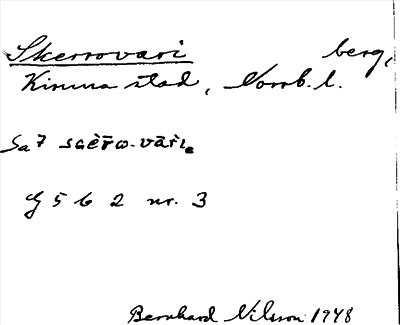 Skerrovari berg,
Kiruna stad, Norrb. l.
Sa 7
G 5 6 2 nr. 3
Bernhard Nilsson 1948